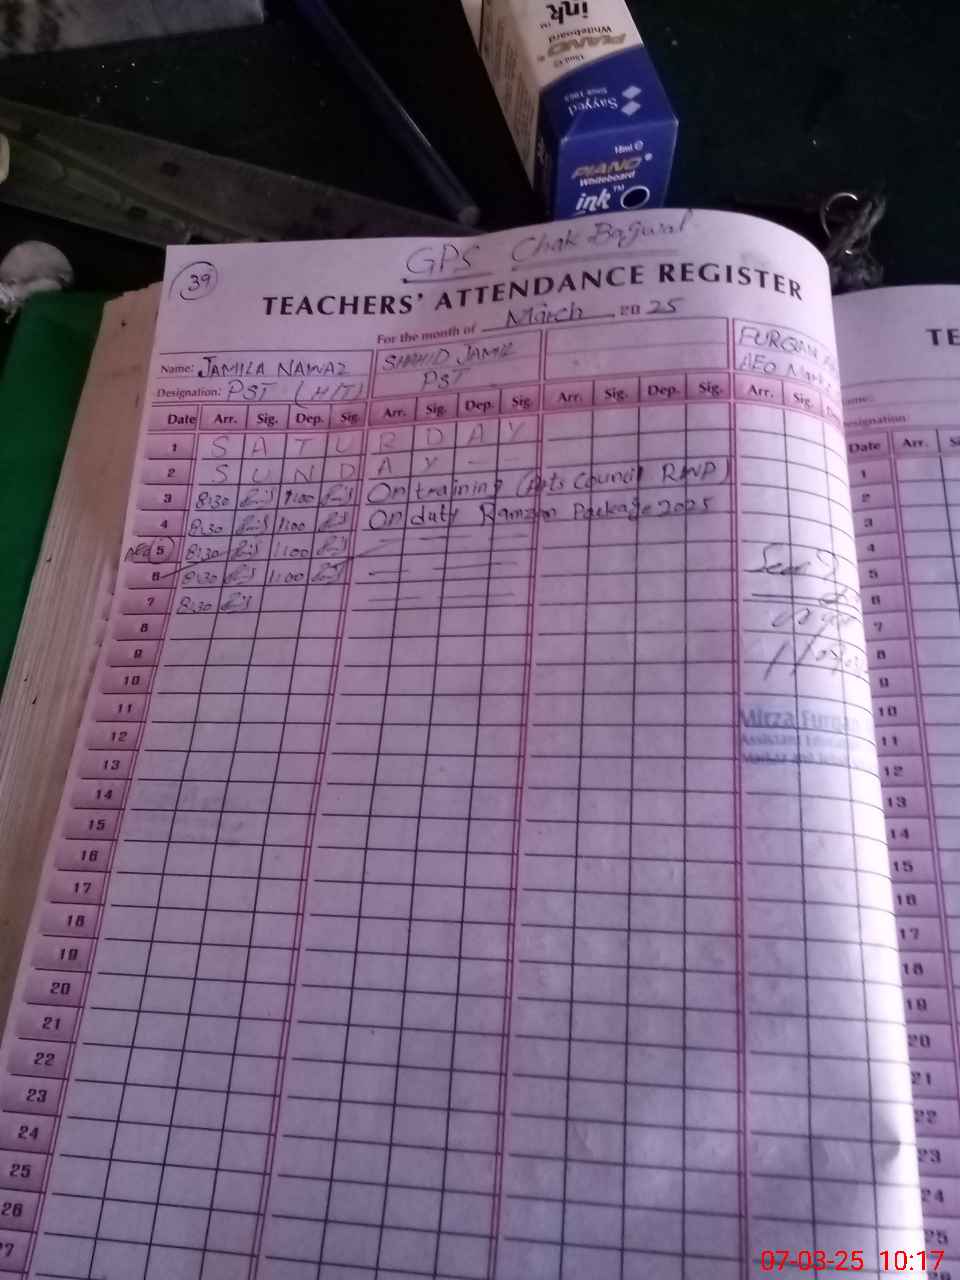 ink™
Whiteboard
PIANO
Sayyed
Since 1963
18ml ℮
PIANO®
Whiteboard
ink™
GPS Chak Bagwal
39
TEACHERS' ATTENDANCE REGISTER
For the month of March 2025
Name: JAMILA NAWAZ SHAHID JAMIL FURQAN
Designation: PST (H/T) PST AEO
Date Arr. Sig. Dep. Sig. Arr. Sig. Dep. Sig. Arr. Sig. Dep. Sig. Arr. Sig.
1 S A T U R D A Y
2 S U N D A Y
3 8:30 1:00 On training (Arts Council RWP)
4 8:30 1:00 On duty Ramzan Package 2025
5 8:30 1:00
6 8:30 1:00
7 8:30
8
9
10
11
12
13
14
15
16
17
18
19
20
21
22
23
24
25
26
Mirza Furqan
Assistant
TE
Date Arr.
1
2
3
4
5
6
7
8
9
10
11
12
13
14
15
16
17
18
19
20
21
22
23
24
25
07-03-25 10:17